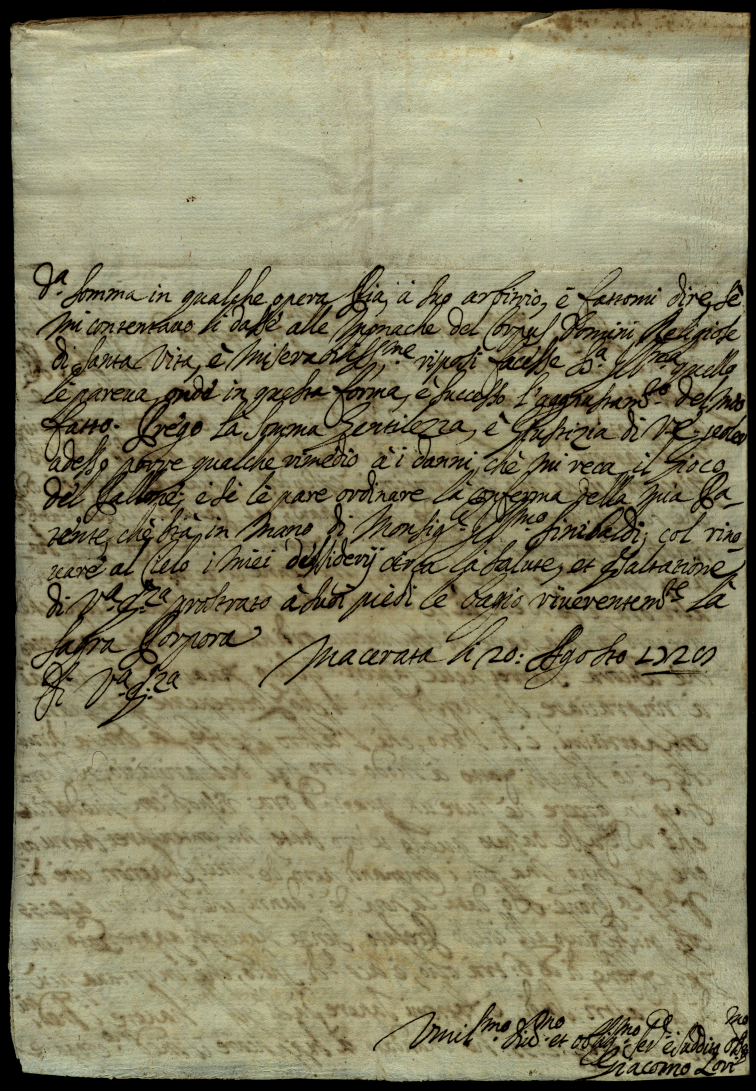 d.ª somma in qualche opera Pia, à suo arbitrio, è fattomi dire, sè
mi contentavo li dasse alle Monache del Corpus Domini Religiose
di santa Vita, è miserabiliss.me risposi facesse V.ª Ill.ma quello
le pareva, onde in questa forma, è successo l'aggiustam.to del mio
fatto. Prego la somma Gentilezza, è Giustizia di V. E.
adesso porre qualche rimedio à i danni, chè mi reca il gioco
del Pallone, e sè le pare ordinare la conferma della mia Pa-
tente, chè stà in mano di Monsig.r Ill.mo Sinibaldi; col rino-
vare al Cielo i miei dessiderij circa la salute, et Esaltatione
di V.ª E.za prostrato à suoi piedi le bagio riverentem.te la
Sagra Porpora
Di V.ª E.za
Macerata li 20: Agosto
Umil.mo Div.mo et Obblig.mo Ser.e e suddito
Giacomo